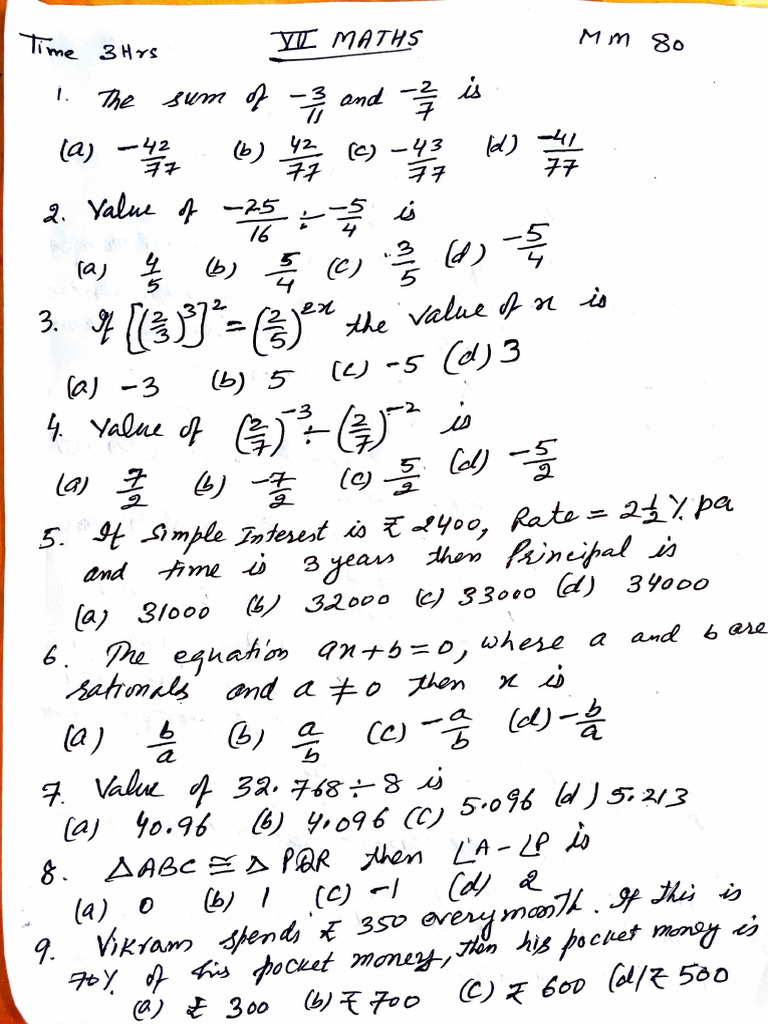 Time 3 Hrs VII MATHS MM 80
1. The sum of -3/11 and -2/7 is
(a) -42/77 (b) 42/77 (c) -43/77 (d) -41/77
2. Value of -25/16 ÷ -5/4 is
(a) 4/5 (b) 5/4 (c) 3/5 (d) -5/4
3. If [(2/3)^3]^2 = (2/5)^2x the value of x is
(a) -3 (b) 5 (c) -5 (d) 3
4. Value of (2/7)^-3 ÷ (2/7)^-2 is
(a) 7/2 (b) -7/2 (c) 5/2 (d) -5/2
5. If Simple Interest is ₹ 2400, Rate = 2 1/2 % pa
and time is 3 years then Principal is
(a) 31000 (b) 32000 (c) 33000 (d) 34000
6. The equation ax+b=0, where a and b are
rationals and a ≠ 0 then x is
(a) b/a (b) a/b (c) -a/b (d) -b/a
7. Value of 32.768 ÷ 8 is
(a) 40.96 (b) 4.096 (c) 5.096 (d) 5.213
8. △ABC ≅ △PQR then ∠A-∠P is
(a) 0 (b) 1 (c) -1 (d) 2
9. Vikram spends ₹ 350 every month. If this is
70% of his pocket money, then his pocket money is
(a) ₹ 300 (b) ₹ 700 (c) ₹ 600 (d) ₹ 500